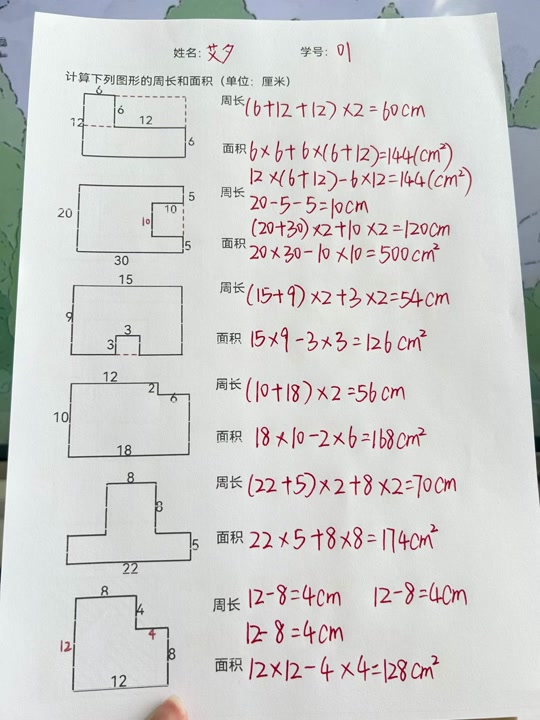 姓名：艾夕 学号：01
计算下列图形的周长和面积（单位：厘米）
6
6
12
12
6
周长 (6+12+12)×2=60cm
面积 6×6+6×(6+12)=144(cm²)
12×(6+12)-6×12=144(cm²)
20
5
10
10
5
30
周长 20-5-5=10cm
(20+30)×2+10×2=120cm
面积 20×30-10×10=500cm²
15
9
3
3
周长 (15+9)×2+3×2=54cm
面积 15×9-3×3=126cm²
12
2
6
10
18
周长 (10+18)×2=56cm
面积 18×10-2×6=168cm²
8
8
5
22
周长 (22+5)×2+8×2=70cm
面积 22×5+8×8=174cm²
8
4
4
12
8
12
周长 12-8=4cm 12-8=4cm
12-8=4cm
面积 12×12-4×4=128cm²